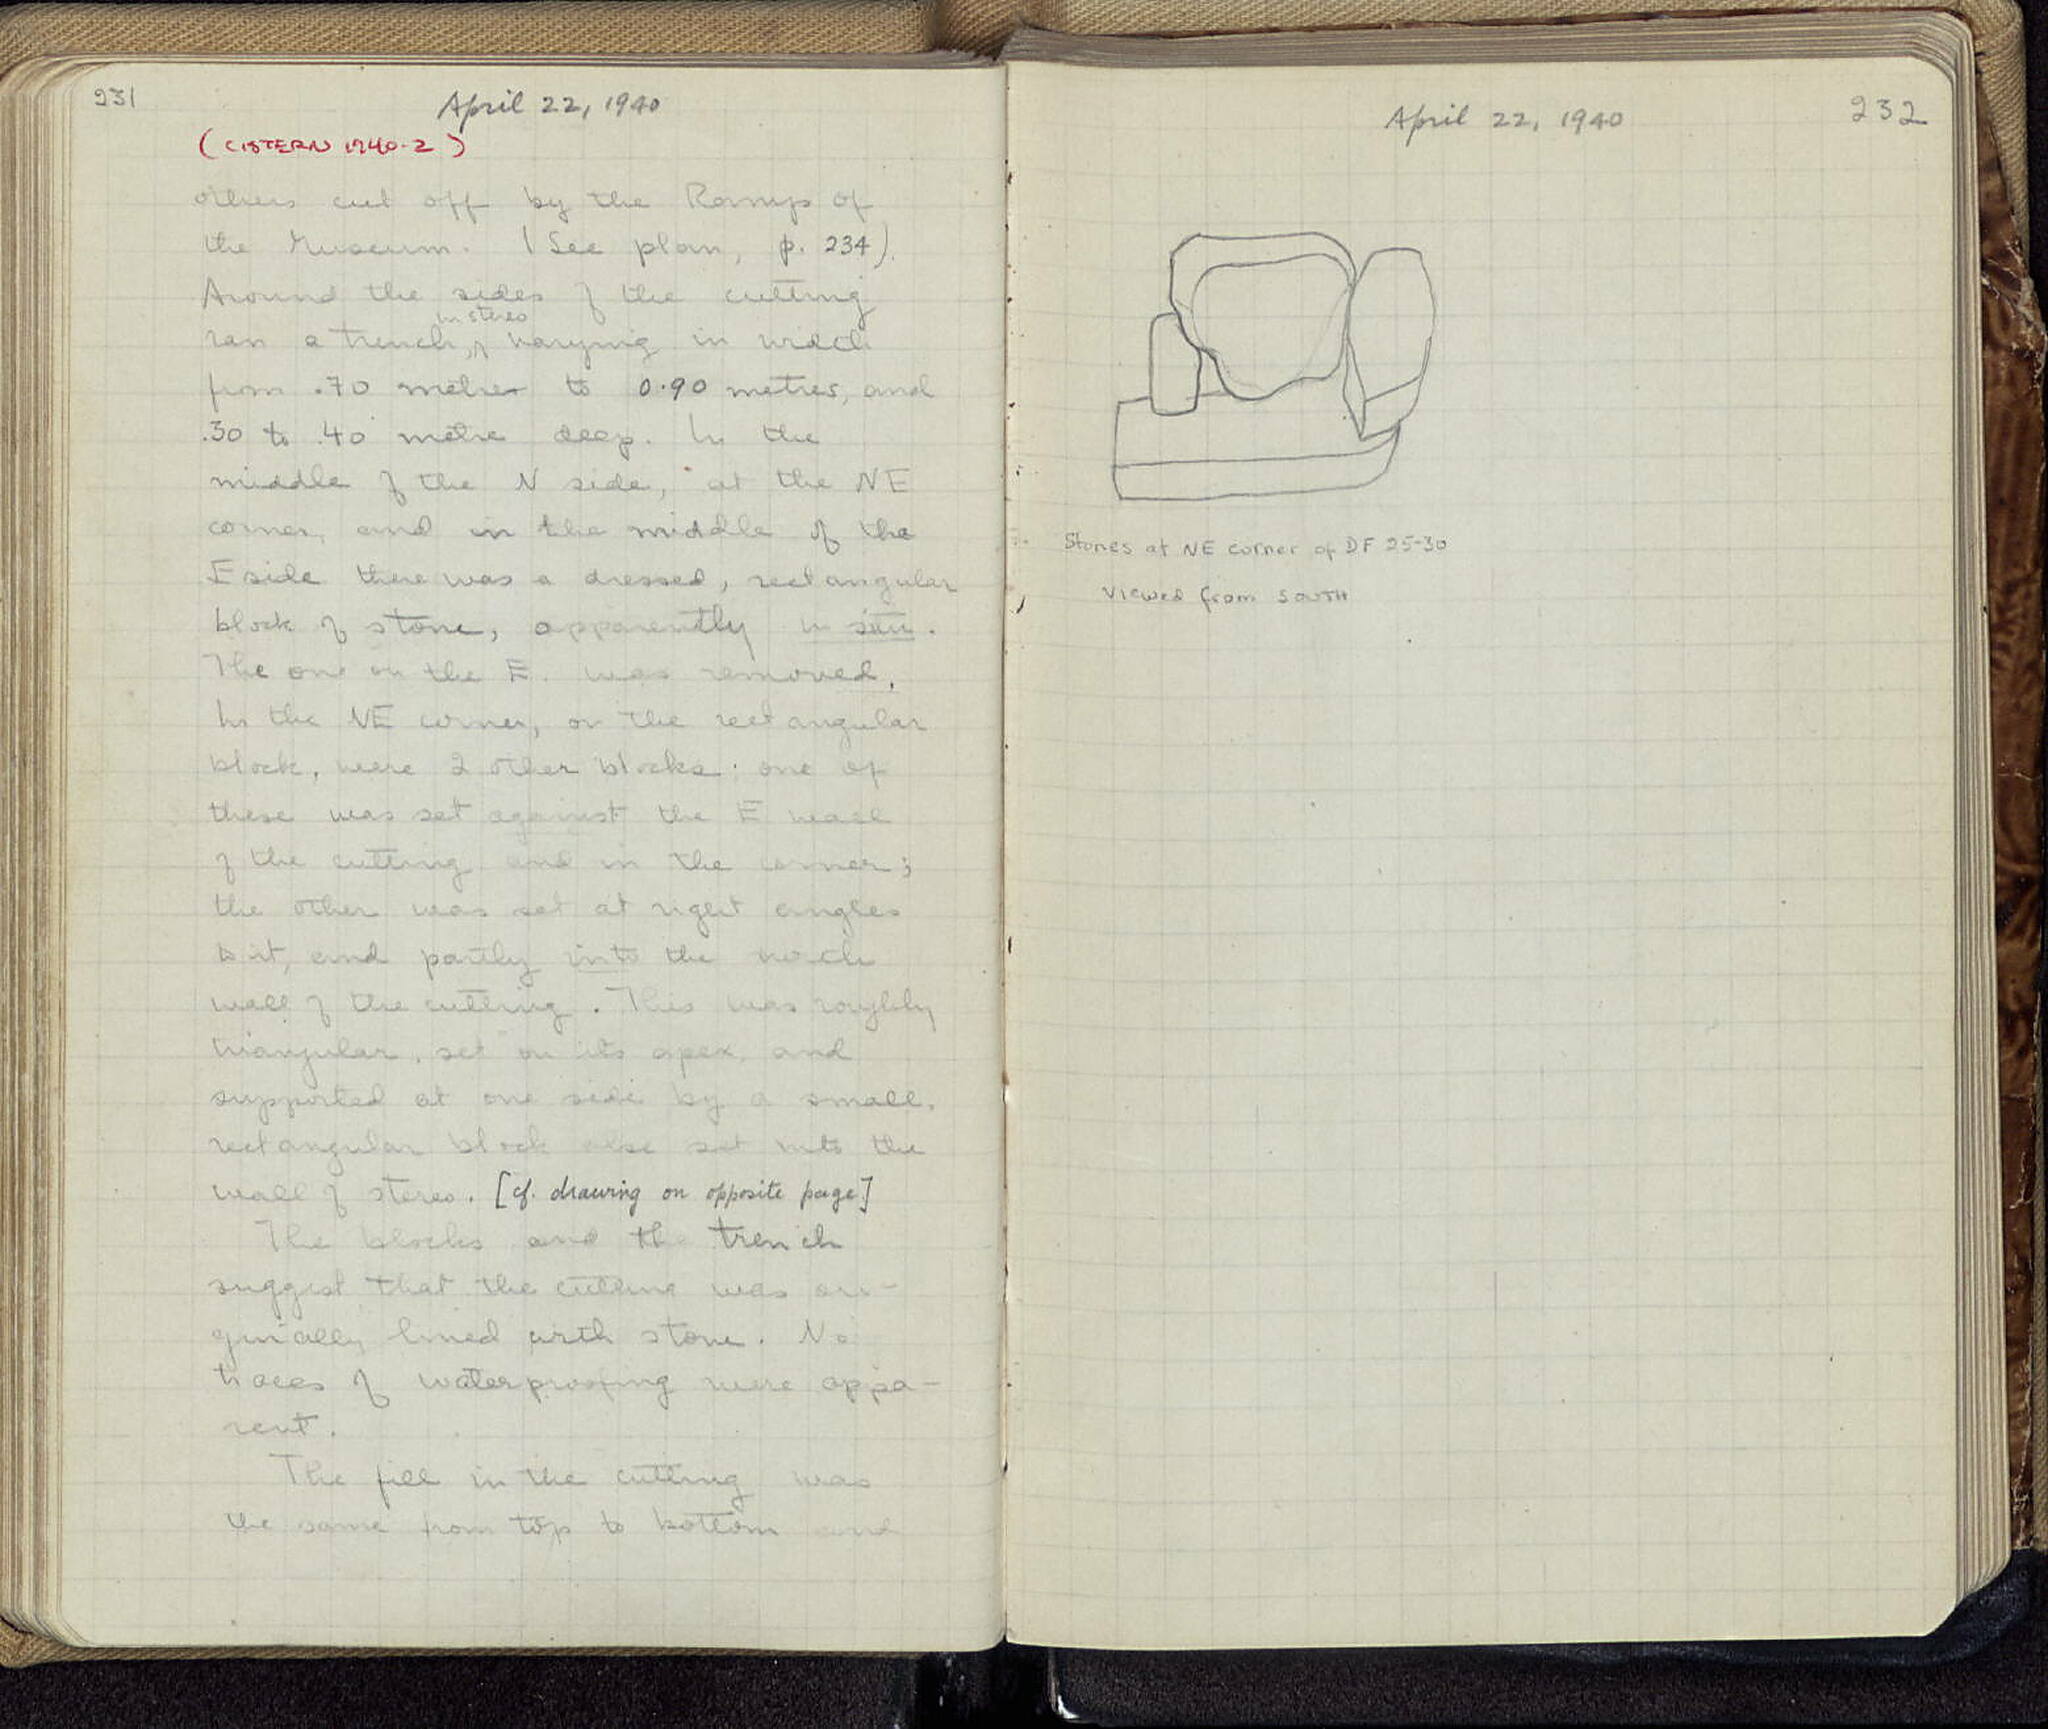 231
April 22, 1940
(CISTERN 1940-2)
others cut off by the Ramp of
the Museum. (See plan, p. 234).
Around the sides of the cutting
in stereo
ran a trench, ^ varying in width
from .70 metres to 0.90 metres, and
.30 to .40 metre deep. In the
middle of the N side, at the NE
corner, and in the middle of the
E side there was a dressed, rectangular
block of stone, apparently in situ.
The one on the E. was removed.
In the NE corner, on the rectangular
block, were 2 other blocks: one of
these was set against the E wall
of the cutting and in the corner;
the other was set at right angles
to it, and partly into the north
wall of the cutting. This was roughly
triangular, set on its apex, and
supported at one side by a small,
rectangular block also set into the
wall of stereo. [cf. drawing on opposite page]
The blocks and the trench
suggest that the cutting was ori-
ginally lined with stone. No
traces of waterproofing were appa-
rent.
The fill in the cutting was
the same from top to bottom and
April 22, 1940
232
Stones at NE corner of DF 25-30
viewed from SOUTH